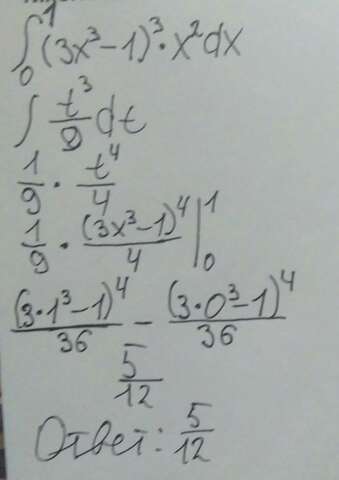 ∫₀¹ (3x³−1)³·x²dx
∫ t³/9 dt
1/9 · t⁴/4
1/9 · (3x³−1)⁴/4 |₀¹
(3·1³−1)⁴/36 − (3·0³−1)⁴/36
5/12
Ответ: 5/12